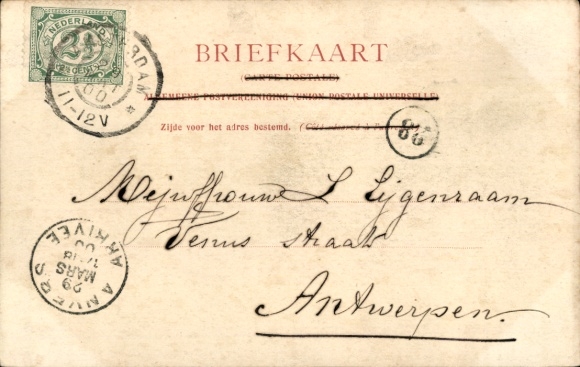 NEDERLAND
2½ CENT
RDAM
00
11-12V
BRIEFKAART
(CARTE POSTALE)
ALGEMEENE POSTVEREENIGING (UNION POSTALE UNIVERSELLE)
Zijde voor het adres bestemd. (Côté réservé à l'adresse)
86
Mejuffrouw L Lijgenraam
Venus straat
Antwerpen.
ANVERS
ARRIVEE
29
MARS
00